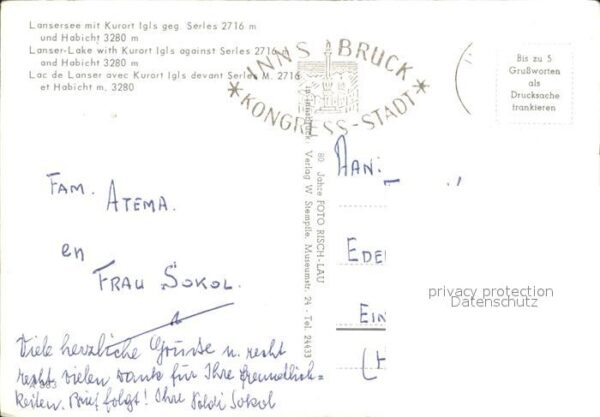 Lansersee mit Kurort Igls geg. Serles 2716 m
und Habicht 3280 m
Lanser-Lake with Kurort Igls against Serles 2716 m
and Habicht 3280 m
Lac de Lanser avec Kurort Igls devant Serles M. 2716
et Habicht m. 3280
INNSBRUCK
* KONGRESS-STADT *
Bis zu 5
Grußworten
als
Drucksache
frankieren
80 Jahre FOTO RISCH-LAU
Verlag W. Stempfle, Museumstr. 24 - Tel. 24433
FAM. ATEMA.
en
FRAU SOKOL.
Viele herzliche Grüsse u. recht
recht vielen Dank für Ihre freundlich-
keiten. Brief folgt! Ihre Sokol
AAN:
EDE
EIN
(H
privacy protection
Datenschutz